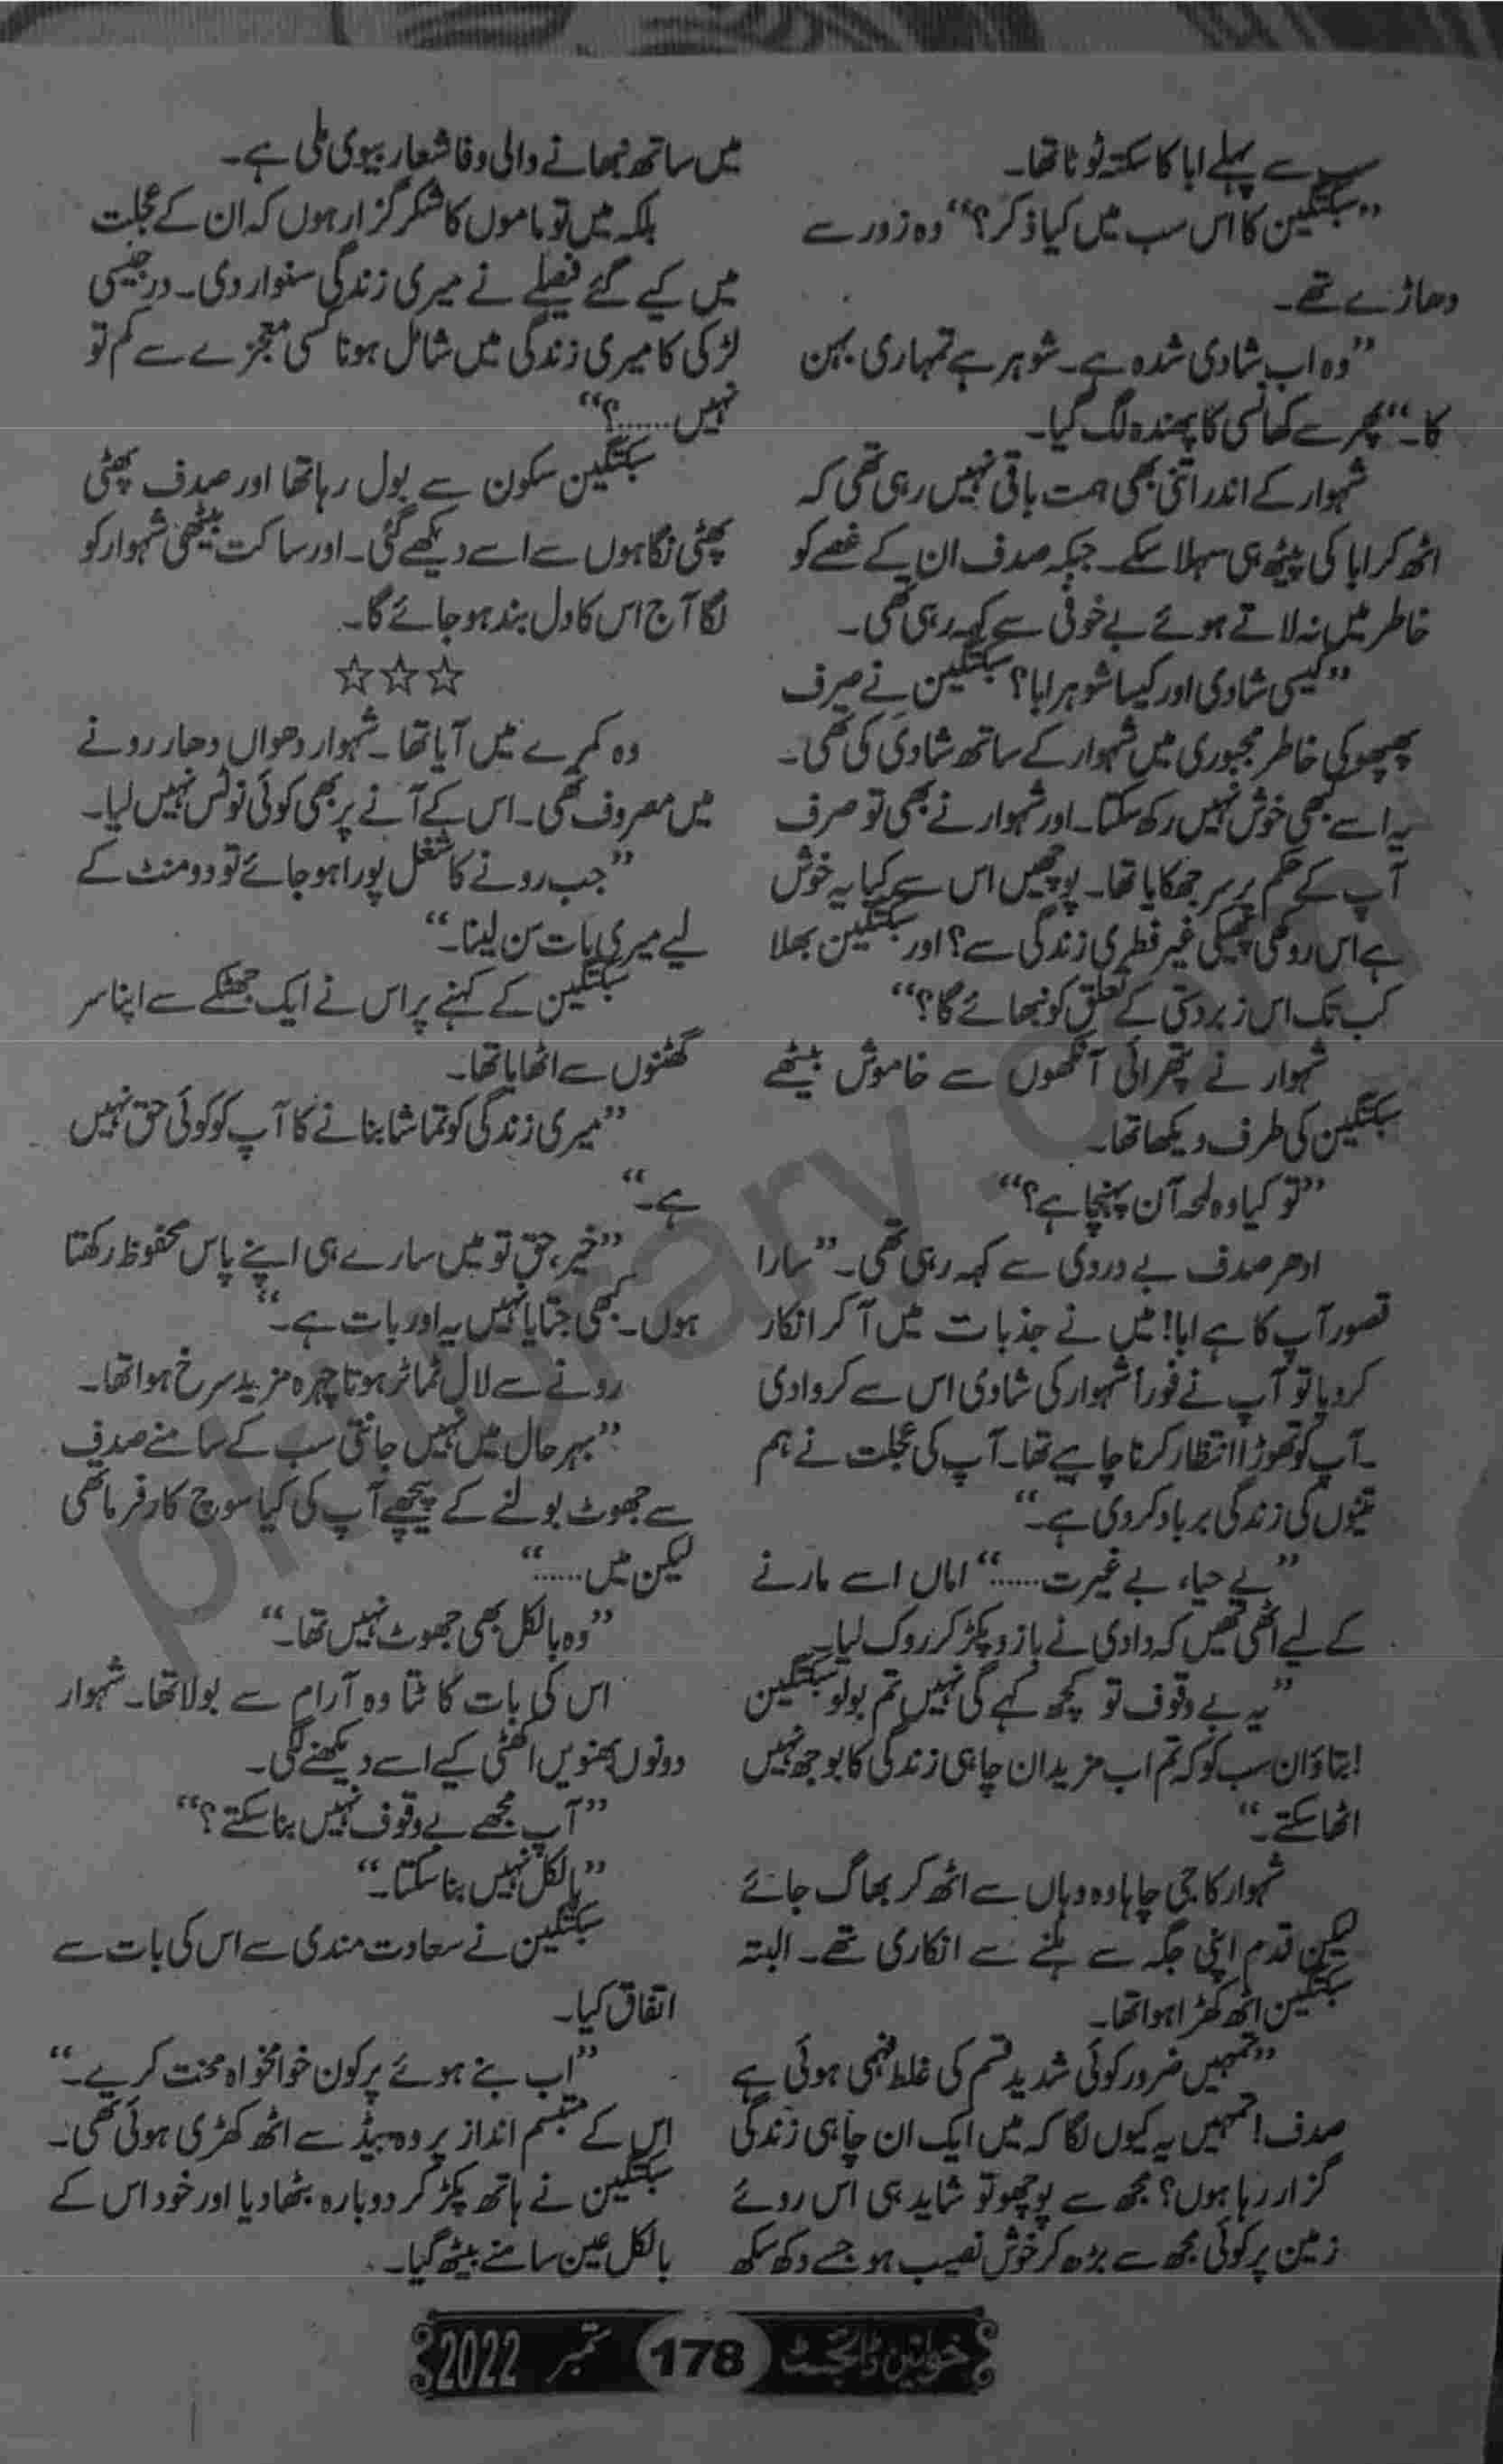 سب سے پہلے ابا کا سکتہ ٹوٹا تھا۔
”سبکتگین کا اس سب میں کیا ذکر؟“ وہ زور سے
دھاڑے تھے۔
”وہ اب شادی شدہ ہے۔ شوہر ہے تمہاری بہن
کا۔“ پھر سے کھانسی کا پھندہ لگ گیا۔
شہوار کے اندر اتنی بھی ہمت باقی نہیں رہی تھی کہ
اٹھ کر ابا کی پیٹھ ہی سہلا سکے۔ جبکہ صدف ان کے غصے کو
خاطر میں نہ لاتے ہوئے بے خوفی سے کہہ رہی تھی۔
”کیسی شادی اور کیسا شوہر ابا؟ سبکتگین نے صرف
پھپھو کی خاطر مجبوری میں شہوار کے ساتھ شادی کی تھی۔
یہ اسے کبھی خوش نہیں رکھ سکتا۔ اور شہوار نے بھی تو صرف
آپ کے حکم پر سر جھکایا تھا۔ پوچھیں اس سے کیا یہ خوش
ہے اس روکھی پھیکی غیر فطری زندگی سے؟ اور سبکتگین بھلا
کب تک اس زبردستی کے تعلق کو نبھائے گا؟“
شہوار نے پتھرائی آنکھوں سے خاموش بیٹھے
سبکتگین کی طرف دیکھا تھا۔
”تو کیا وہ لمحہ آن پہنچا ہے؟“
ادھر صدف بے دردی سے کہہ رہی تھی۔ ”سارا
قصور آپ کا ہے ابا! میں نے جذبات میں آ کر انکار
کر دیا تو آپ نے فوراً شہوار کی شادی اس سے کروا دی
۔ آپ کو تھوڑا انتظار کرنا چاہیے تھا۔ آپ کی عجلت نے ہم
تینوں کی زندگی برباد کر دی ہے۔“
”بے حیاء بے غیرت......“ اماں اسے مارنے
کے لیے اٹھی تھیں کہ دادی نے بازو پکڑ کر روک لیا۔
”یہ بے وقوف تو کچھ کہے گی نہیں تم بولو سبکتگین
! بتاؤ ان سب کو کہ تم اب مزید ان چاہی زندگی کا بوجھ نہیں
اٹھا سکتے۔“
شہوار کا جی چاہا وہ وہاں سے اٹھ کر بھاگ جائے
لیکن قدم اپنی جگہ سے ہلنے سے انکاری تھے۔ البتہ
سبکتگین اٹھ کھڑا ہوا تھا۔
”تمہیں ضرور کوئی شدید قسم کی غلط فہمی ہوئی ہے
صدف! تمہیں یہ کیوں لگا کہ میں ایک ان چاہی زندگی
گزار رہا ہوں؟ مجھ سے پوچھو تو شاید ہی اس روئے
زمین پر کوئی مجھ سے بڑھ کر خوش نصیب ہو جسے دکھ سکھ
میں ساتھ نبھانے والی وفا شعار بیوی ملی ہے۔
بلکہ میں تو ماموں کا شکر گزار ہوں کہ ان کے عجلت
میں کیے گئے فیصلے نے میری زندگی سنوار دی۔ در جیسی
لڑکی کا میری زندگی میں شامل ہونا کسی معجزے سے کم تو
نہیں......؟“
سبکتگین سکون سے بول رہا تھا اور صدف پھٹی
پھٹی نگاہوں سے اسے دیکھے گئی۔ اور ساکت بیٹھی شہوار کو
لگا آج اس کا دل بند ہو جائے گا۔
☆☆☆
وہ کمرے میں آیا تھا۔ شہوار دھواں دھار رونے
میں مصروف تھی۔ اس کے آنے پر بھی کوئی نوٹس نہیں لیا۔
”جب رونے کا شغل پورا ہو جائے تو دو منٹ کے
لیے میری بات سن لینا۔“
سبکتگین کے کہنے پر اس نے ایک جھٹکے سے اپنا سر
گھٹنوں سے اٹھایا تھا۔
”میری زندگی کو تماشا بنانے کا آپ کو کوئی حق نہیں
ہے۔“
”خیر، حق تو میں سارے ہی اپنے پاس محفوظ رکھتا
ہوں۔ کبھی جتایا نہیں یہ اور بات ہے۔“
رونے سے لال ٹماٹر ہوتا چہرہ مزید سرخ ہوا تھا۔
”بہر حال میں نہیں جانتی سب کے سامنے صدف
سے جھوٹ بولنے کے پیچھے آپ کی کیا سوچ کارفرما تھی
لیکن میں......“
”وہ بالکل بھی جھوٹ نہیں تھا۔“
اس کی بات کاٹتا وہ آرام سے بولا تھا۔ شہوار
دونوں بھنویں اکھٹی کیے اسے دیکھنے لگی۔
”آپ مجھے بے وقوف نہیں بنا سکتے؟“
”بالکل نہیں بنا سکتا۔“
سبکتگین نے سعادت مندی سے اس کی بات سے
اتفاق کیا۔
”اب بنے ہوئے پر کون خوامخواہ محنت کرے۔“
اس کے متبسم انداز پر وہ بیڈ سے اٹھ کھڑی ہوئی تھی۔
سبکتگین نے ہاتھ پکڑ کر دوبارہ بٹھا دیا اور خود اس کے
بالکل عین سامنے بیٹھ گیا۔
خواتین ڈائجسٹ 178 ستمبر 2022
pklibrary.com